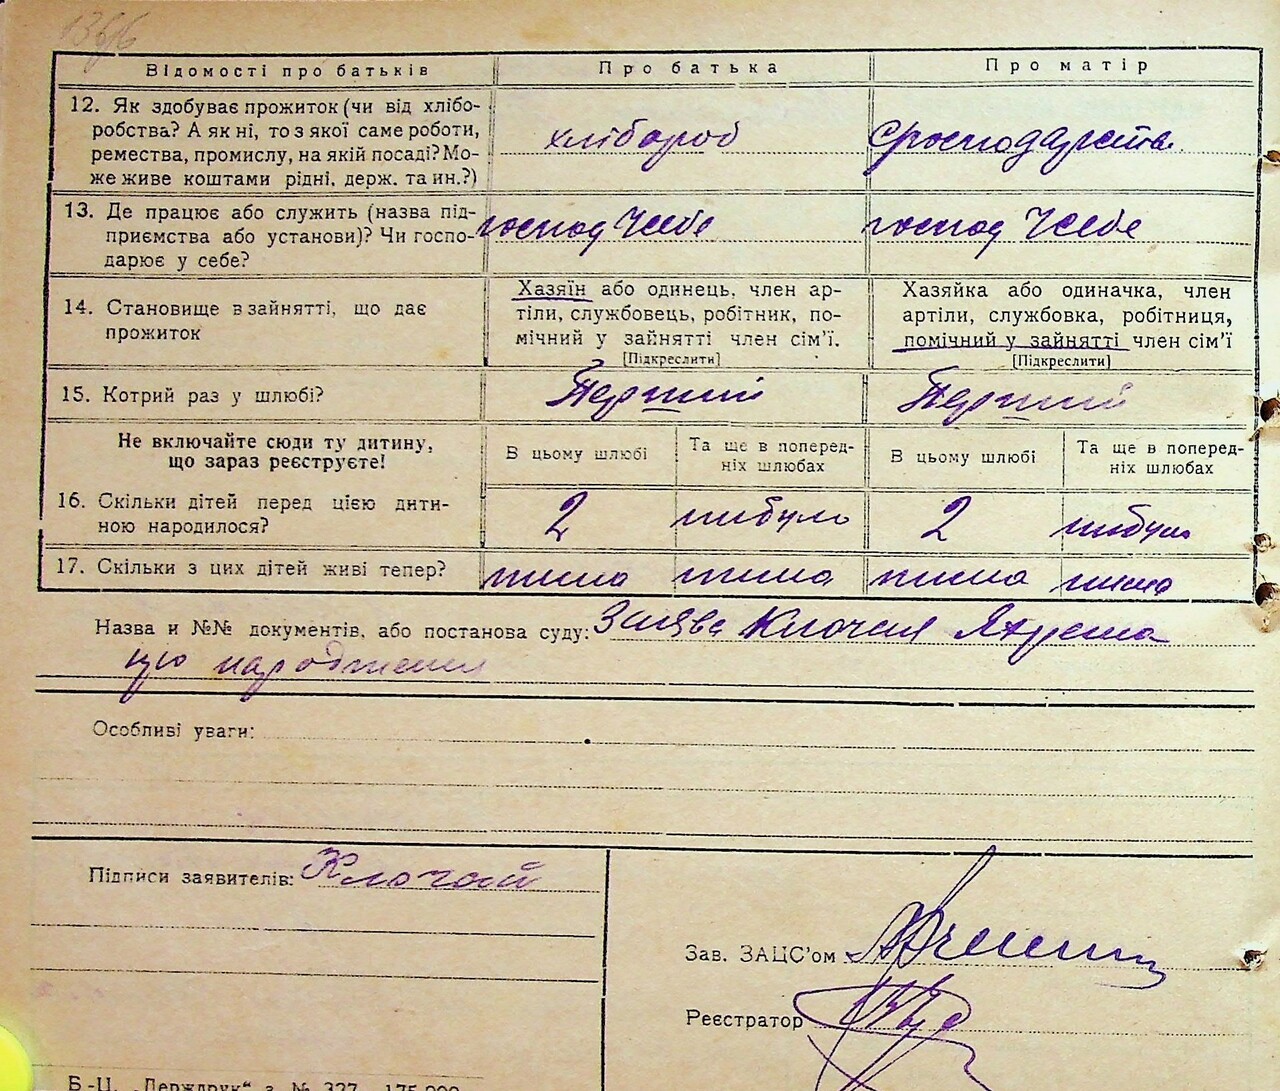 136
Відомості про батьків Про батька Про матір
12. Як здобуває прожиток (чи від хлібо-
робства? А як ні, то з якої саме роботи,
ремества, промислу, на якій посаді? Мо-
же живе коштами рідні, держ. та ин.?)
хлібороб
господарства
13. Де працює або служить (назва під-
приємства або установи)? Чи госпо-
дарює у себе?
господ У себе
господ У себе
14. Становище в зайнятті, що дає
прожиток
Хазяїн або одинець, член ар-
тіли, службовець, робітник, по-
мічний у зайнятті член сім'ї.
[Підкреслити]
Хазяйка або одиначка, член
артіли, службовка, робітниця,
помічний у зайнятті член сім'ї
[Підкреслити]
15. Котрий раз у шлюбі? Перший Перший
Не включайте сюди ту дитину,
що зараз реєструєте!
В цьому шлюбі
Та ще в поперед-
ніх шлюбах
В цьому шлюбі
Та ще в поперед-
ніх шлюбах
16. Скільки дітей перед цією дити-
ною народилося?
2 небуло 2 небуло
17. Скільки з цих дітей живі тепер? нема нема нема нема
Назва и №№ документів, або постанова суду: Заява Клочая
народження
Особливі уваги:
Підписи заявителів: Клочай
Зав. ЗАЦС'ом
Реєстратор
Б-Ц. „Держдрук“ з. № 327 175.000